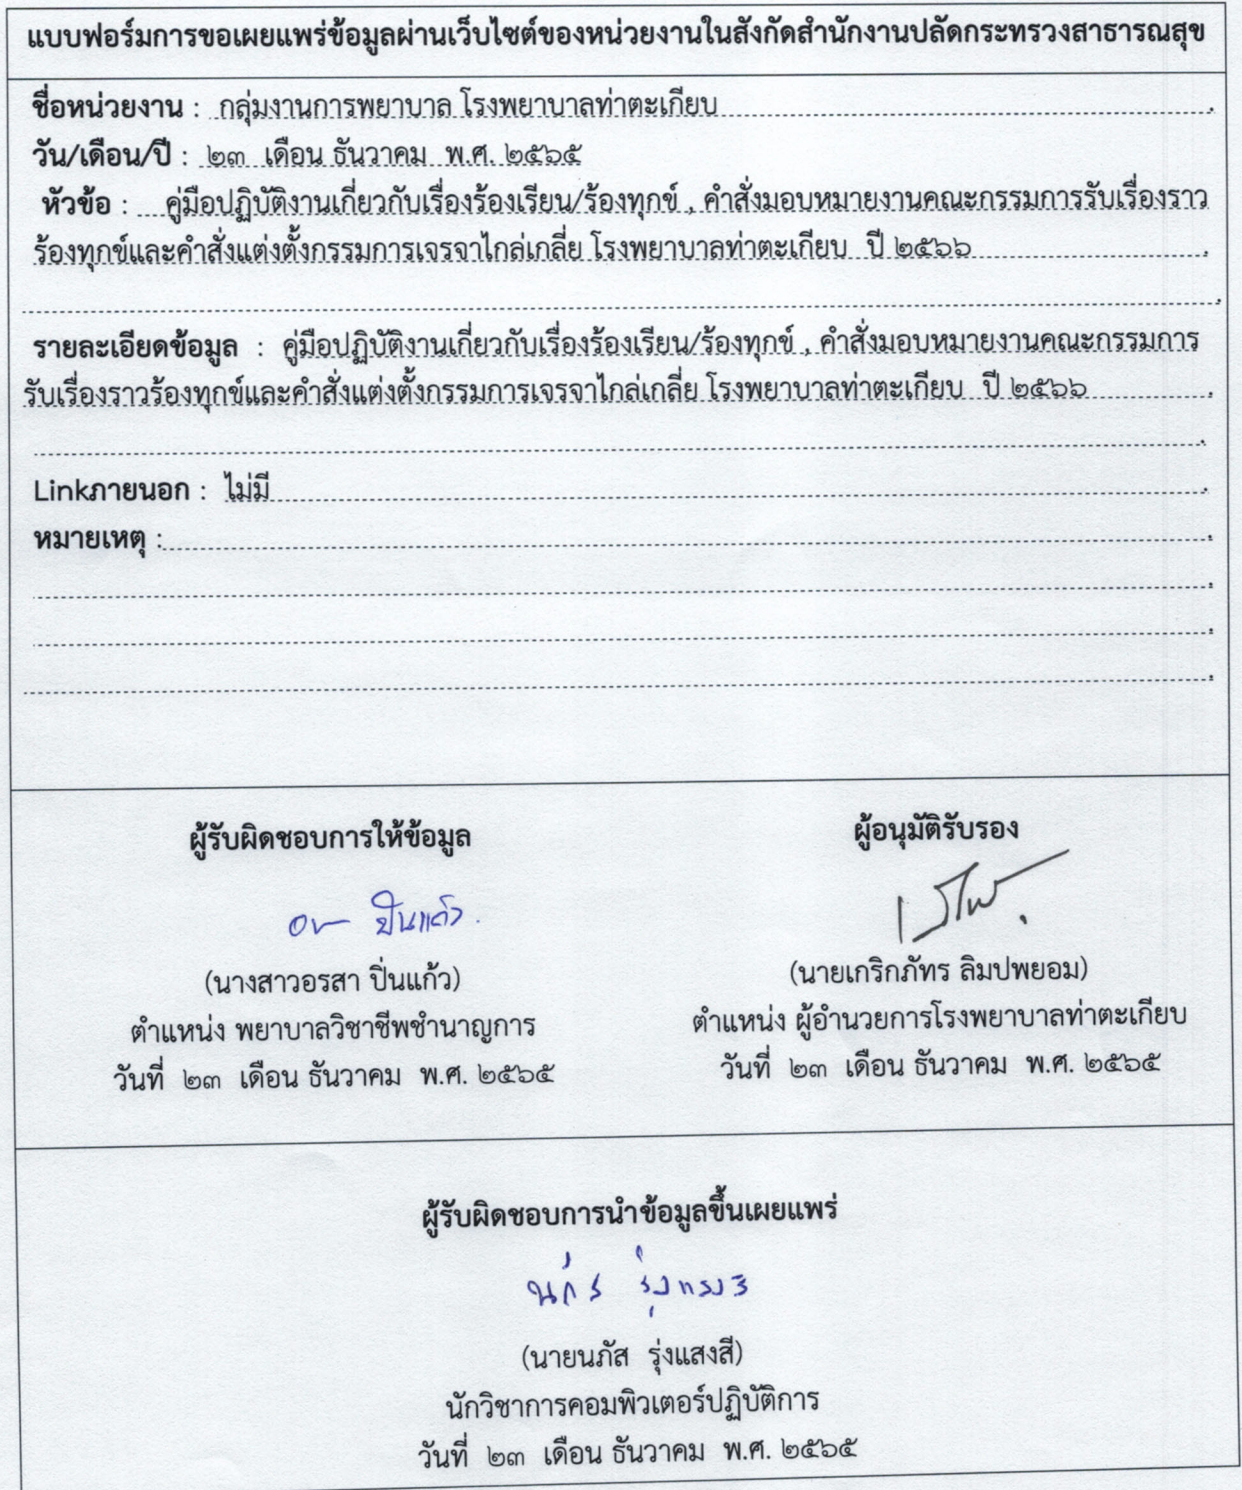 แบบฟอร์มการขอเผยแพร่ข้อมูลผ่านเว็บไซต์ของหน่วยงานในสังกัดสำนักงานปลัดกระทรวงสาธารณสุข
ชื่อหน่วยงาน : กลุ่มงานการพยาบาล โรงพยาบาลท่าตะเกียบ
วัน/เดือน/ปี : ๒๓ เดือน ธันวาคม พ.ศ. ๒๕๖๕
หัวข้อ : คู่มือปฏิบัติงานเกี่ยวกับเรื่องร้องเรียน/ร้องทุกข์ , คำสั่งมอบหมายงานคณะกรรมการรับเรื่องราว
ร้องทุกข์และคำสั่งแต่งตั้งกรรมการเจรจาไกล่เกลี่ย โรงพยาบาลท่าตะเกียบ ปี ๒๕๖๖
รายละเอียดข้อมูล : คู่มือปฏิบัติงานเกี่ยวกับเรื่องร้องเรียน/ร้องทุกข์ , คำสั่งมอบหมายงานคณะกรรมการ
รับเรื่องราวร้องทุกข์และคำสั่งแต่งตั้งกรรมการเจรจาไกล่เกลี่ย โรงพยาบาลท่าตะเกียบ ปี ๒๕๖๖
Linkภายนอก : ไม่มี
หมายเหตุ :
ผู้รับผิดชอบการให้ข้อมูล
ปิ่นแก้ว
(นางสาวอรสา ปิ่นแก้ว)
ตำแหน่ง พยาบาลวิชาชีพชำนาญการ
วันที่ ๒๓ เดือน ธันวาคม พ.ศ. ๒๕๖๕
ผู้อนุมัติรับรอง
(นายเกริกภัทร ลิมปพยอม)
ตำแหน่ง ผู้อำนวยการโรงพยาบาลท่าตะเกียบ
วันที่ ๒๓ เดือน ธันวาคม พ.ศ. ๒๕๖๕
ผู้รับผิดชอบการนำข้อมูลขึ้นเผยแพร่
(นายนภัส รุ่งแสงสี)
นักวิชาการคอมพิวเตอร์ปฏิบัติการ
วันที่ ๒๓ เดือน ธันวาคม พ.ศ. ๒๕๖๕